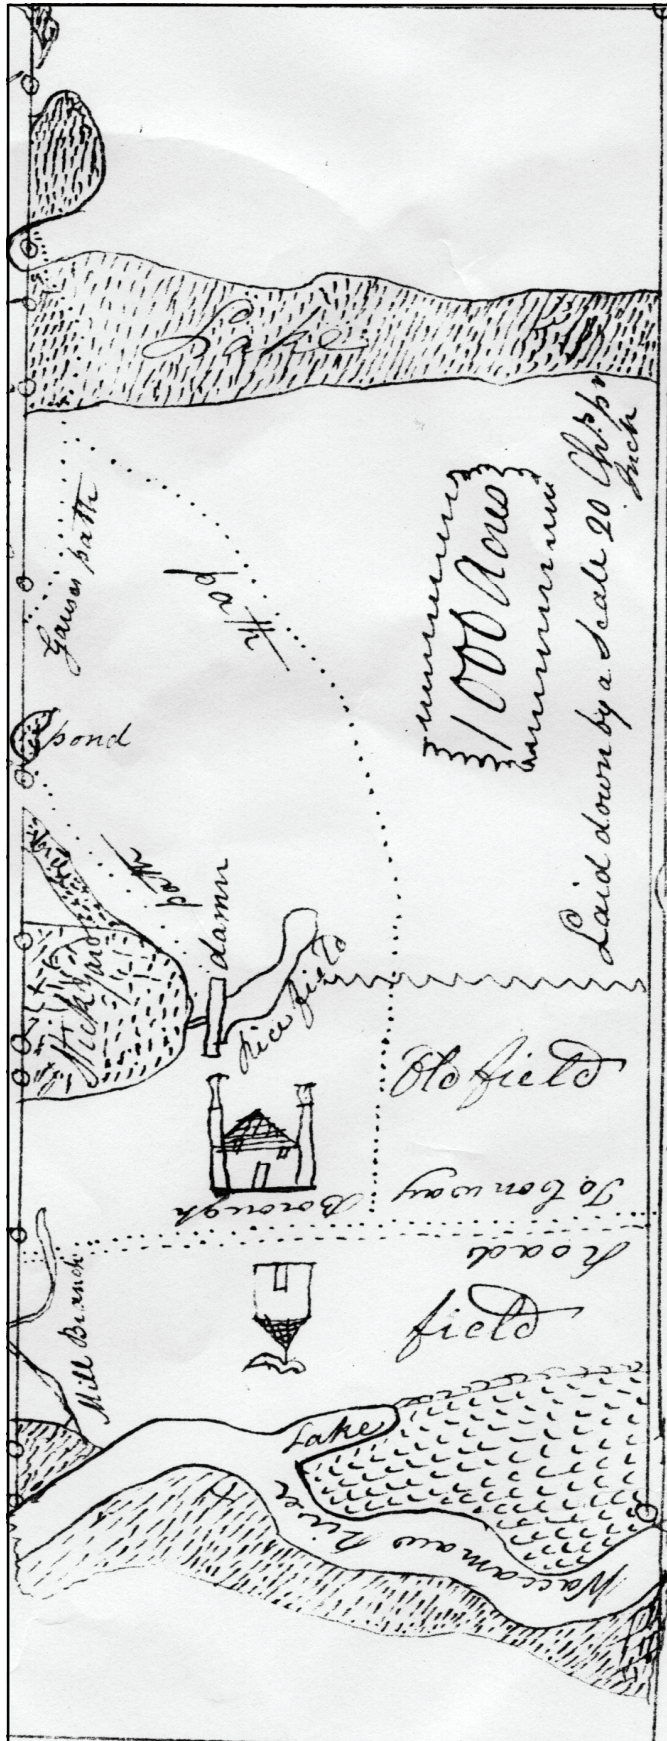 Lake
Gauses path
path
1000 Acres
Laid down by a Scale 20 Chs. pr
Inch
pond
path
damn
Rice field
Old field
To Conway
Borough
Road
field
Mill Branch
Lake
Waccamaw River